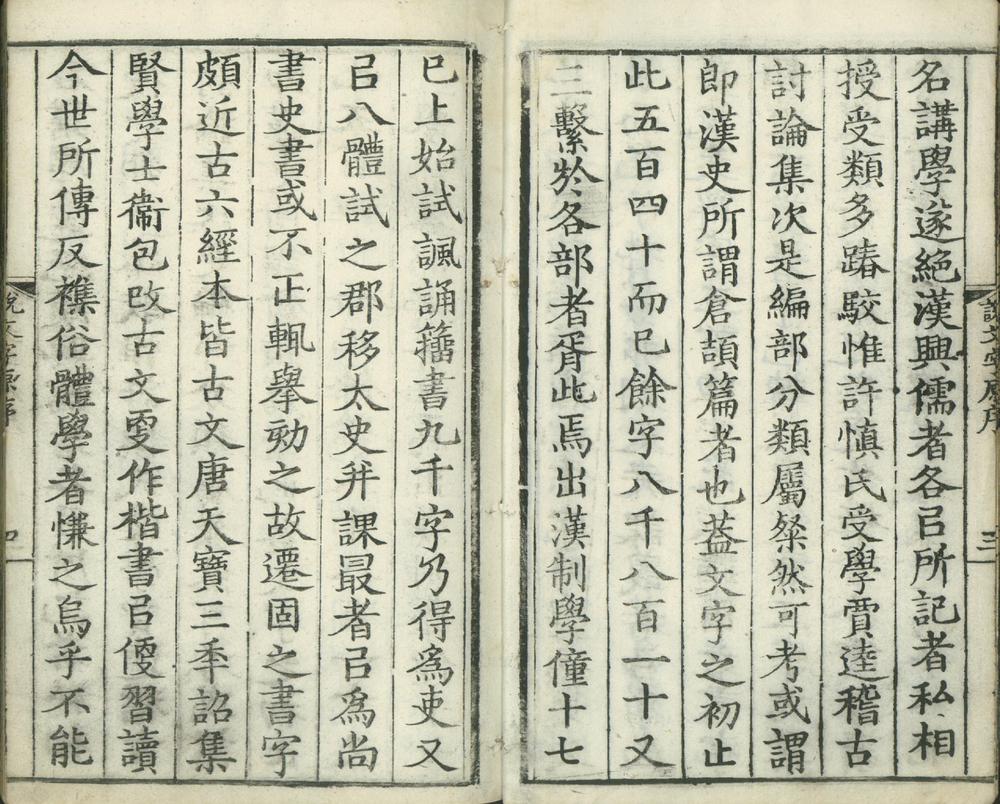 名講學遂絶漢興儒者各㠯所記者私相
授受類多踳駮惟許慎氏受學賈逵稽古
討論集次是編部分類屬粲然可考或謂
卽漢史所謂倉頡篇者也葢文字之初止
此五百四十而已餘字八千八百一十又
三繫於各部者胥此焉出漢制學僮十七
已上始試諷誦籀書九千字乃得爲吏又
㠯八體試之郡移太史幷課最者㠯爲尚
書史書或不正輒舉劾之故遷固之書字
頗近古六經本皆古文唐天寶三秊詔集
賢學士衞包改古文㪅作楷書㠯便習讀
今世所傳反襍俗體學者慊之烏乎不能
說文字原序
三
說文字原序
四